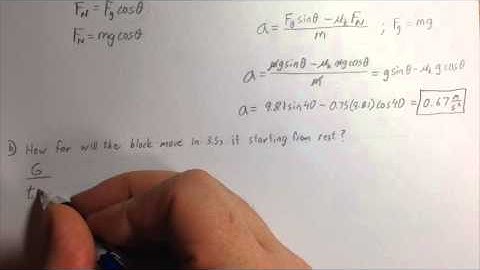 F_N = F_g cosθ
F_N = mg cosθ
a = (F_g sinθ − μ_k F_N) / m ; F_g = mg
a = (mg sinθ − μ_k mg cosθ) / m = g sinθ − μ_k g cosθ
a = 9.81 sin40 − 0.75(9.81)cos40 = 0.67 m/s²
b) How far will the block move in 3.5s if starting from rest?
G
t